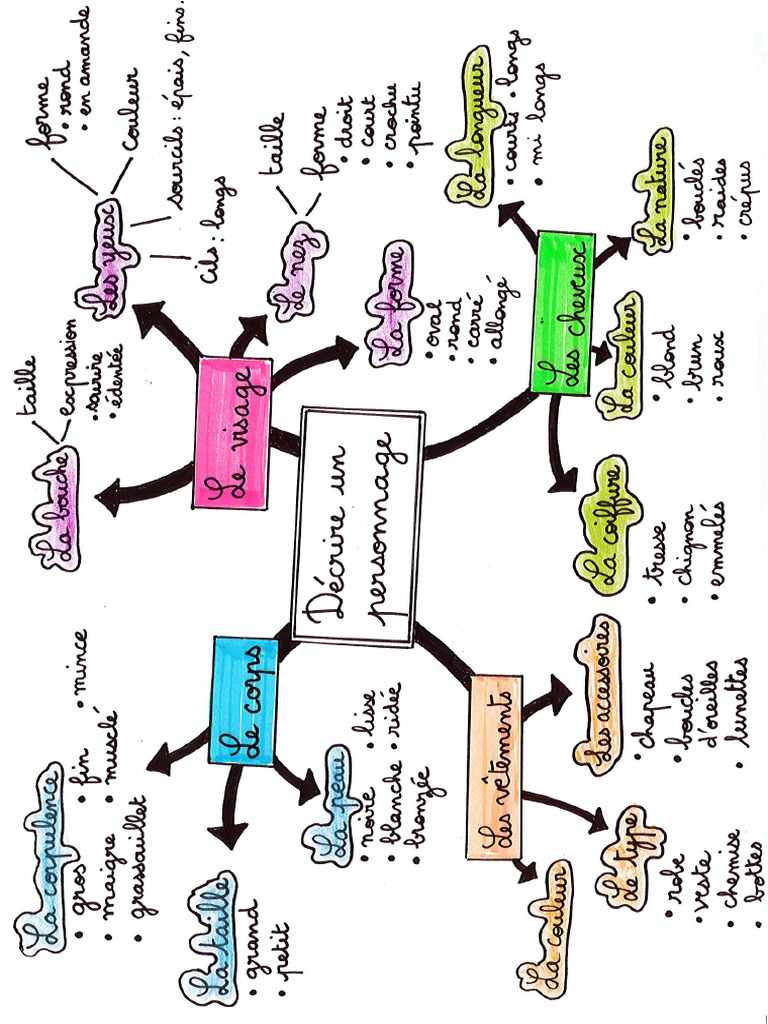 Décrire un
personnage
Le corps
La corpulence
• gros • fin • mince
• maigre • musclé
• grassouillet
La taille
• grand
• petit
La peau
• noire • lisse
• blanche • ridée
• bronzée
Le visage
La bouche
taille
expression
• sourire
• édentée
Les yeux
forme
• rond
• en amande
couleur
sourcils : épais, fins.
cils : longs
Le nez
taille
forme
• droit
• court
• crochu
• pointu
La forme
• oval
• rond
• carré
• allongé
Les cheveux
La longueur
• courts • longs
• mi longs
La nature
• bouclés
• raides
• crépus
La couleur
• blond
• brun
• roux
La coiffure
• tresse
• chignon
• emmelés
Les vêtements
Les accessoires
• chapeau
• boucles
d'oreilles
• lunettes
Le type
• robe
• veste
• chemise
• bottes
La couleur